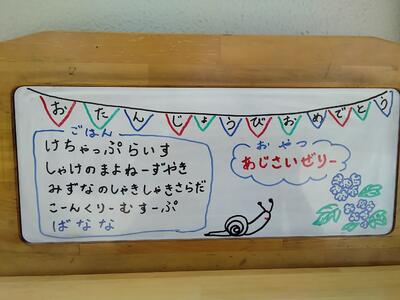 おたんじょうびおめでとう
ごはん
けちゃっぷらいす
しゃけのまよねーずやき
みずなのしゃきしゃきさらだ
こーんくりーむすーぷ
ばなな
おやつ
あじさいぜりー